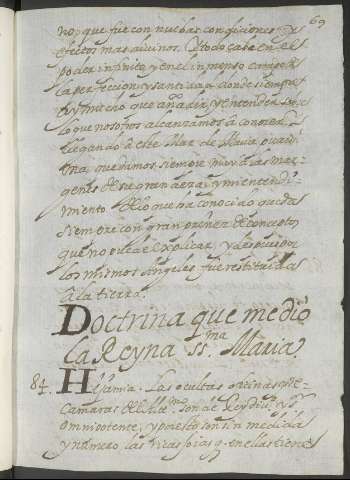 69
no; que fue con muchas condiciones y
efectos mas divinos. Y todo cabe en el
poder infinito, y en el inmenso campo de
la perfeccion y santidad, donde siempre
ay mucho que añadir, y entender sobre
lo que nosotros alcanzamos a conocer. Y
llegando a este Mar de Maria puris
sima, quedamos siempre muy a las mar-
genes de su grandeza; y mi entendi-
miento de lo que ha conocido queda
siempre con gran preñez de conceptos
que no puede explicar. Y despues por
los mismos Angeles fue restituida
a la tierra.
Doctrina que me dió
la Reyna SS.ma Maria.
84. Hija mia. Las ocultas oficinas y re-
camaras del Alt.mo son de Rey Div.o y S.r
omnipotente, y por esto son sin medida
y numero las ricas joias q. en ellas tiene